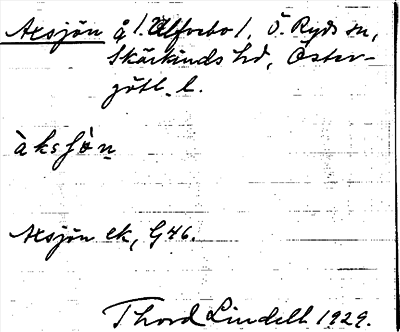 Axsjön å /. Ulfsbo /, Ö. Ryds sn,
Skärkinds hd, Öster-
götl. l.
àksʃὼn
Axsjön ek, G46.
Thord Lindell 1929.